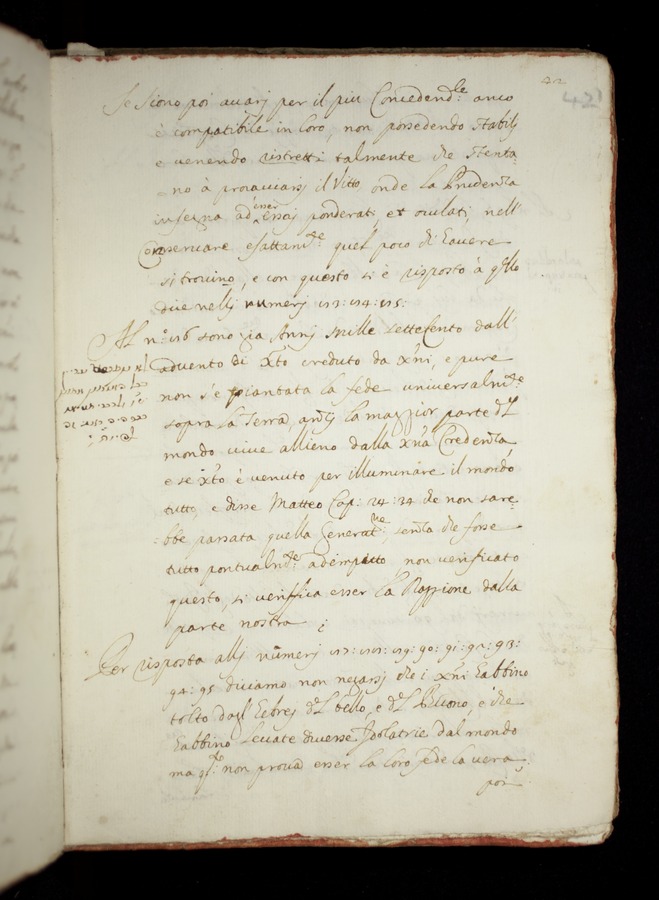 42
Se siono poi avari per il piu Concedend:le anco
è compatibile in loro, non possedendo stabilj
e venendo ristretti talmente che stenta:
no à procacciarsi il Vitto onde la Prudenza
insegna ad esser essi ponderati et oculati, nell'
Conservare esattam:te quel poco di Havere
si trovino, e con questo si è risposto à q:lle
due nellj numerj 113: 114: 115:
Al n:o 116 sono gia Annj mille settecento dall'
advento di Xto creduto da Xni, e pure
non s'è piantata la fede universalm:te
sopra la Terra, anzj la maggior parte del
mondo vive allieno dalla Xna Credenza
e se Xto è venuto per illuminare il mondo
tutto, e disse Matteo Cap: 24: 34 che non sare:
:bbe passata quella Generat:ne, senza che fosse
tutto pontualm:te adempiuto, non verificato
questo, si verifica esser la Raggione dalla
parte nostra
Per risposta allj numerj 117: 118: 119: 90: 91: 92: 93:
94: 95 diciamo non negarsj che i Xni habbino
tolto dagl'Hebrej del bello, e del Buono, e che
habbino levate diverse Idolatrie dal mondo
ma q:to non prova esser la loro fede la vera,
poi